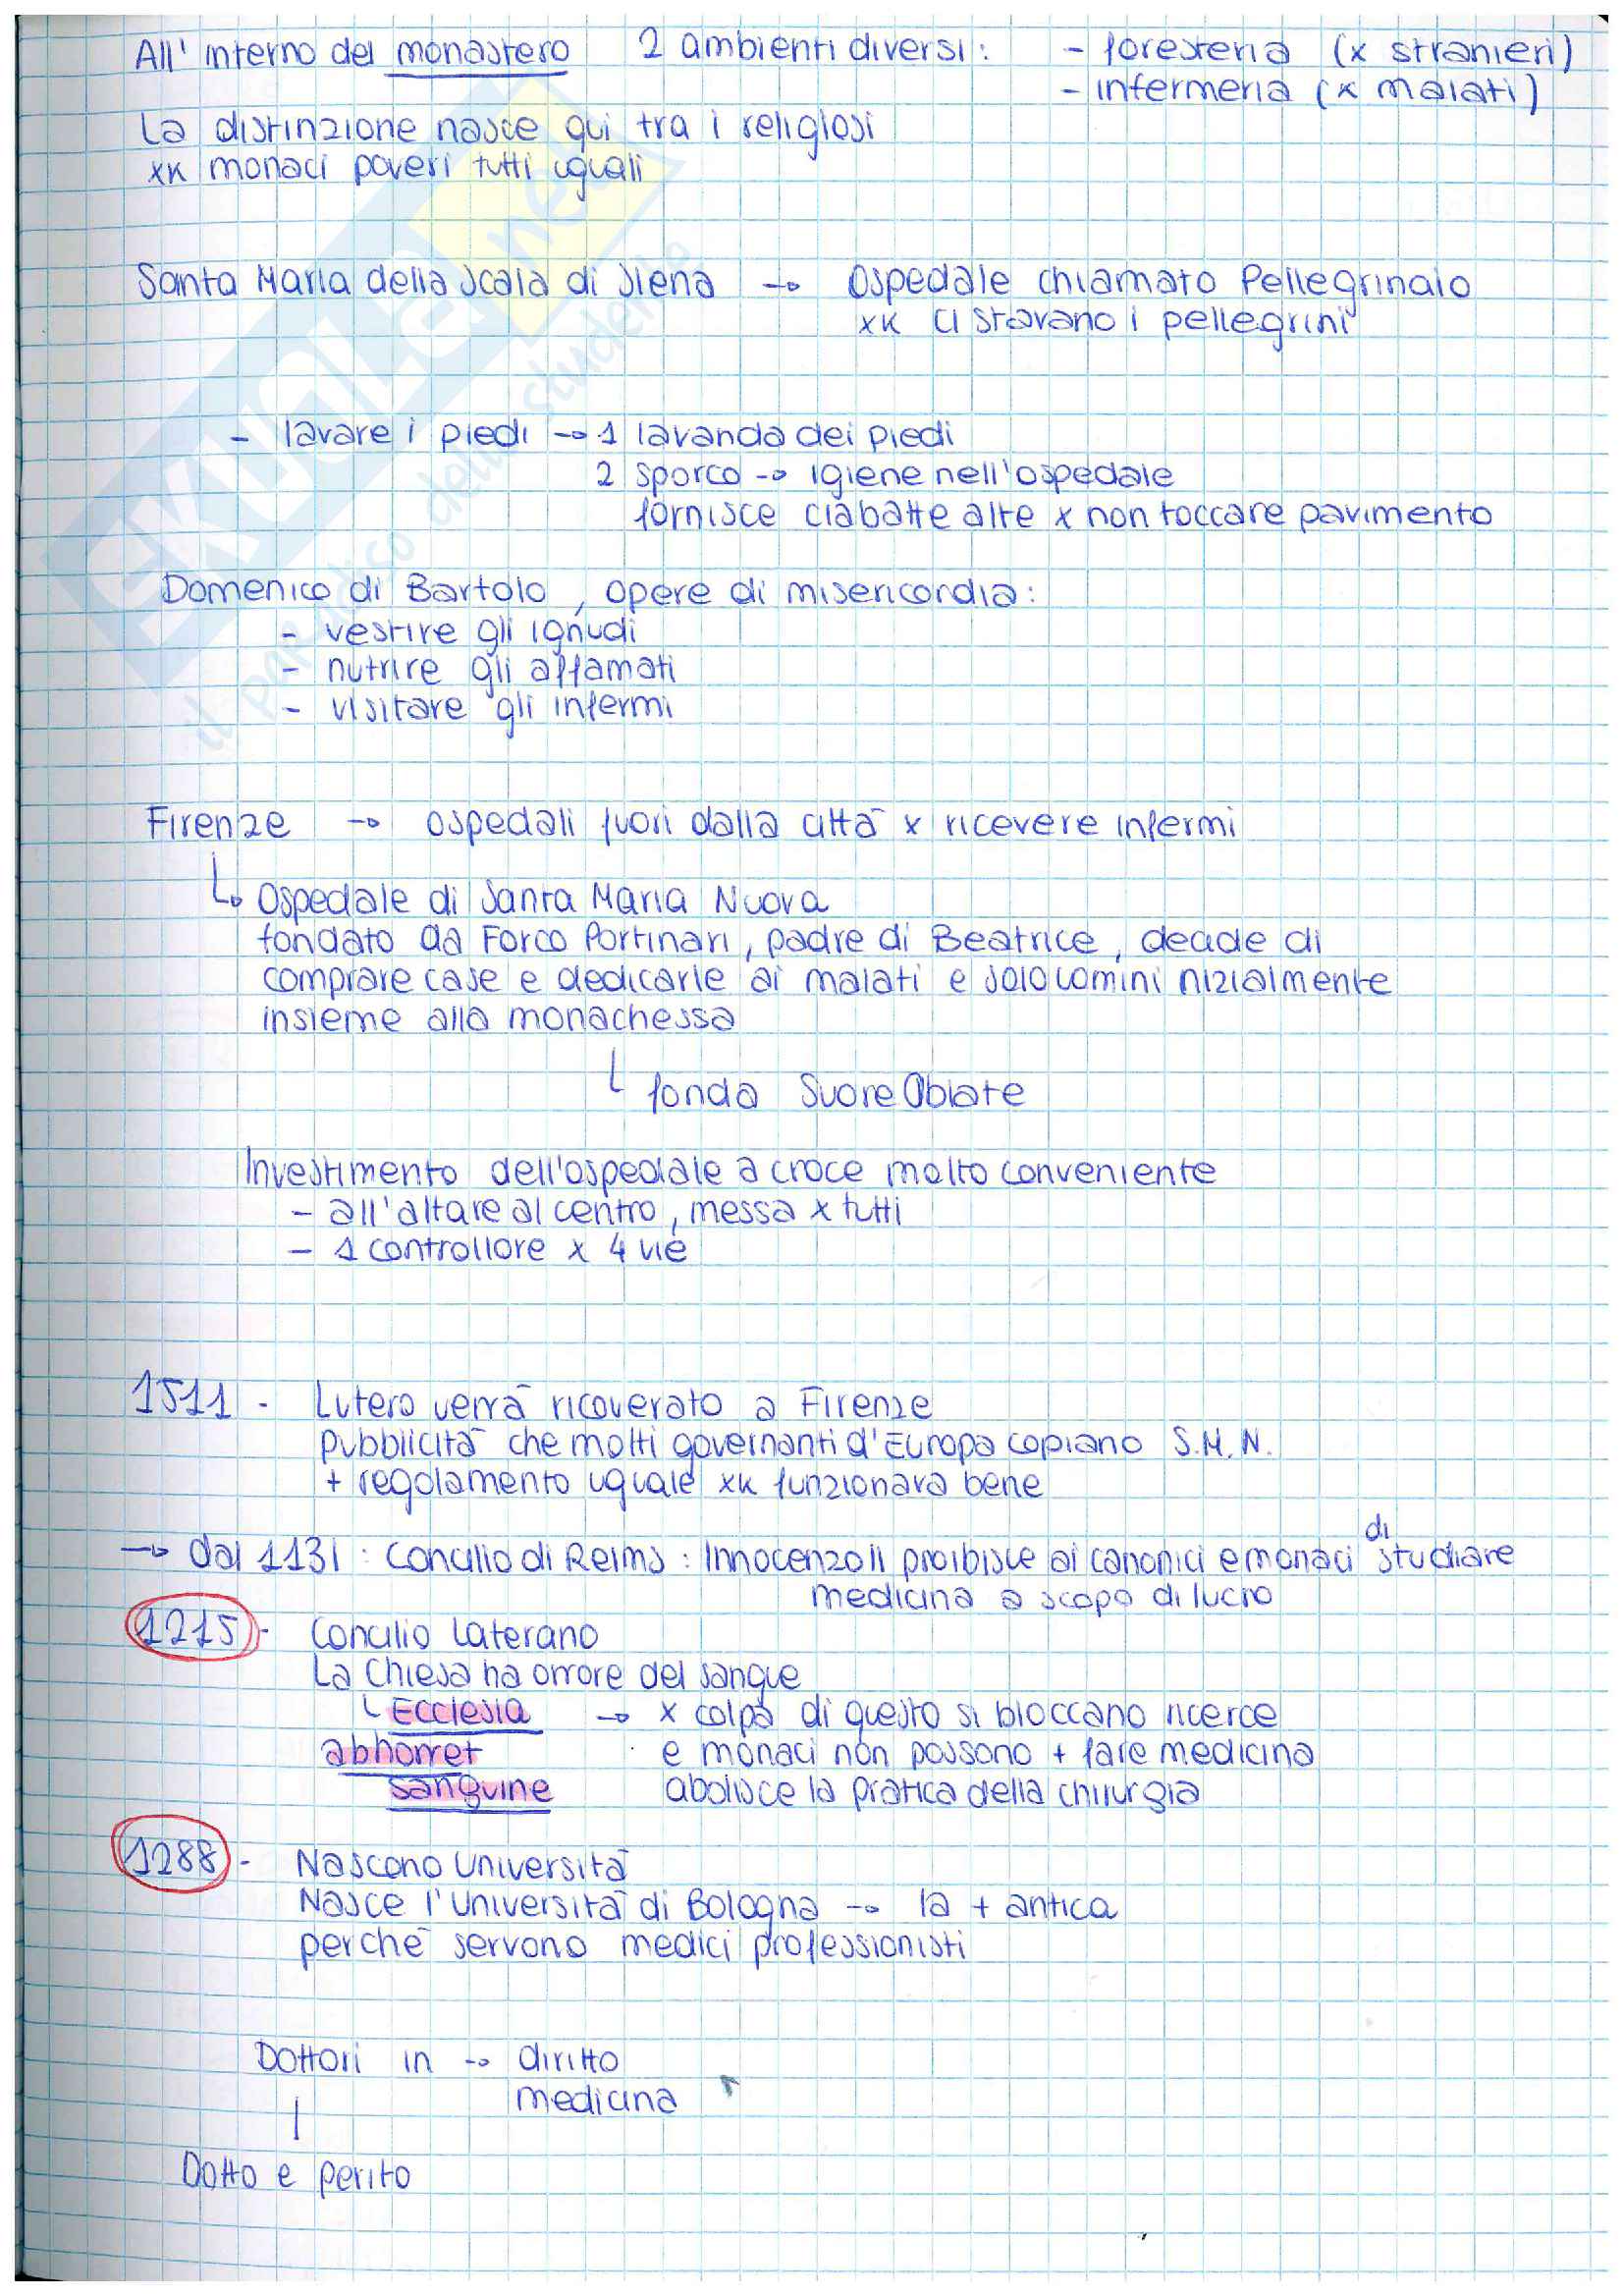 All'interno del monastero 2 ambienti diversi: - foresteria (x stranieri)
- infermeria (x malati)
La distinzione nasce qui tra i religiosi
xk monaci poveri tutti uguali
Santa Maria della Scala di Siena → Ospedale chiamato Pellegrinaio
xk ci stavano i pellegrini
- lavare i piedi → 1 lavanda dei piedi
2 sporco → igiene nell'ospedale
fornisce ciabatte alte x non toccare pavimento
Domenico di Bartolo, opere di misericordia:
- vestire gli ignudi
- nutrire gli affamati
- visitare gli infermi
Firenze → ospedali fuori dalla città x ricevere infermi
↳ Ospedale di Santa Maria Nuova
fondato da Forco Portinari, padre di Beatrice, decide di
comprare case e dedicarle ai malati e solo uomini nizialmente
insieme alla monachessa
└ fonda Suore Oblate
Investimento dell'ospedale a croce molto conveniente
- all'altare al centro, messa x tutti
- 1 controllore x 4 vie
1511 - Lutero verrà ricoverato a Firenze
Pubblicità che molti governanti d'Europa copiano S.M.N.
+ regolamento uguale xk funzionava bene
→ dal 1131: Concilio di Reims: Innocenzo II proibisce ai canonici e monaci di studiare
medicina a scopo di lucro
1215 - Concilio Laterano
La Chiesa ha orrore del sangue
└ Ecclesia → x colpa di questo si bloccano ricerce
abhorret e monaci non possono + fare medicina
sanguine abolisce la pratica della chirurgia
1288 - Nascono Università
Nasce l'Università di Bologna → la + antica
perchè servono medici professionisti
Dottori in → diritto
medicina
Dotto e perito
SKUOLA.net
il paradiso dello studente